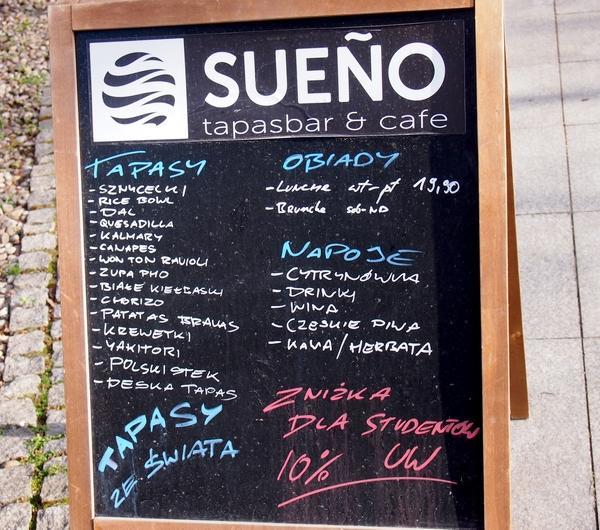 SUEÑO
tapasbar & cafe
TAPASY
- SZNYCELKI
- RICE BOWL
- DAL
- QUESADILLA
- KALMARY
- CANAPES
- WON TON RAVIOLI
- ZUPA PHO
- BIAŁE KIEŁBASKI
- CHORIZO
- PATATAS BRAVAS
- KREWETKI
- YAKITORI
- POLSKI STEK
- DESKA TAPAS
TAPASY
ZE ŚWIATA
OBIADY
- LUNCHE wt-pt 19,90
- BRUNCHE sob-ND
NAPOJE
- CYTRYNÓWKA
- DRINKI
- WINA
- CZESKIE PIWA
- KAWA/HERBATA
ZNIŻKA
DLA STUDENTÓW
10% UW